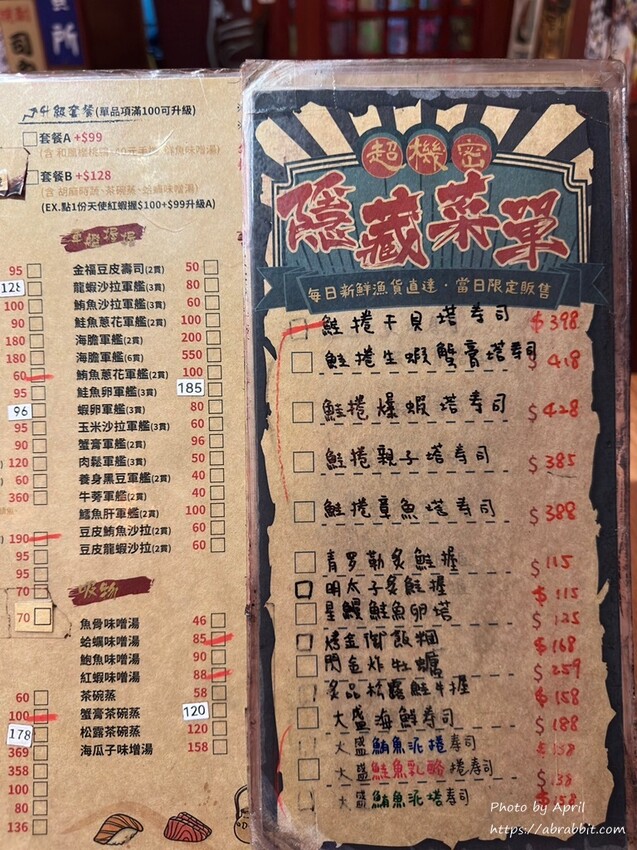 升級套餐(單品項滿100可升級)
套餐A +$99
套餐B +$128
(含 胡麻時蔬、茶碗蒸、蛤蠣味噌湯)
(EX.點1份天使紅蝦握$100+$99升級A)
軍艦握壽
95
128
100
90
180
180
60
95
96
95
90
120
60
360
190
95
95
70
70
60
100
178
369
358
100
80
136
金福豆皮壽司(2貫) 50
龍蝦沙拉軍艦(3貫) 80
鮪魚沙拉軍艦(3貫) 60
鮭魚蔥花軍艦(2貫) 100
海膽軍艦(2貫) 200
海膽軍艦(6貫) 550
鮪魚蔥花軍艦(2貫) 100
鮭魚卵軍艦(3貫) 185
蝦卵軍艦(3貫) 80
玉米沙拉軍艦(3貫) 60
蟹膏軍艦(2貫) 96
肉鬆軍艦(3貫) 50
養身黑豆軍艦(2貫) 40
牛蒡軍艦(2貫) 40
鱈魚肝軍艦(2貫) 100
豆皮鮪魚沙拉(2貫) 60
豆皮龍蝦沙拉(2貫) 60
吸物
魚骨味噌湯 46
蛤蠣味噌湯 85
鮑魚味噌湯 90
紅蝦味噌湯 88
茶碗蒸 58
蟹膏茶碗蒸 120
松露茶碗蒸 120
海瓜子味噌湯 158
超機密
隱藏菜單
每日新鮮漁貨直達·當日限定販售
鮭捲干貝塔壽司 $398
鮭捲生蝦蟹膏塔壽司 $418
鮭捲爆蝦塔壽司 $428
鮭捲親子塔壽司 $385
鮭捲章魚塔壽司 $388
青羅勒炙鮭握 $115
明太子炙鮭握 $115
星鰻鮭魚卵塔 $135
烤金目飯糰 $168
閃色炸牡蠣 $259
炙品松露鮭牛握 $158
大盛海鮮壽司 $188
大盛鮪魚泥捲壽司 138
大盛鮭魚乳酪捲壽司 $138
大盛鮪魚泥塔壽司 $158
Photo by April
https://abrabbit.com